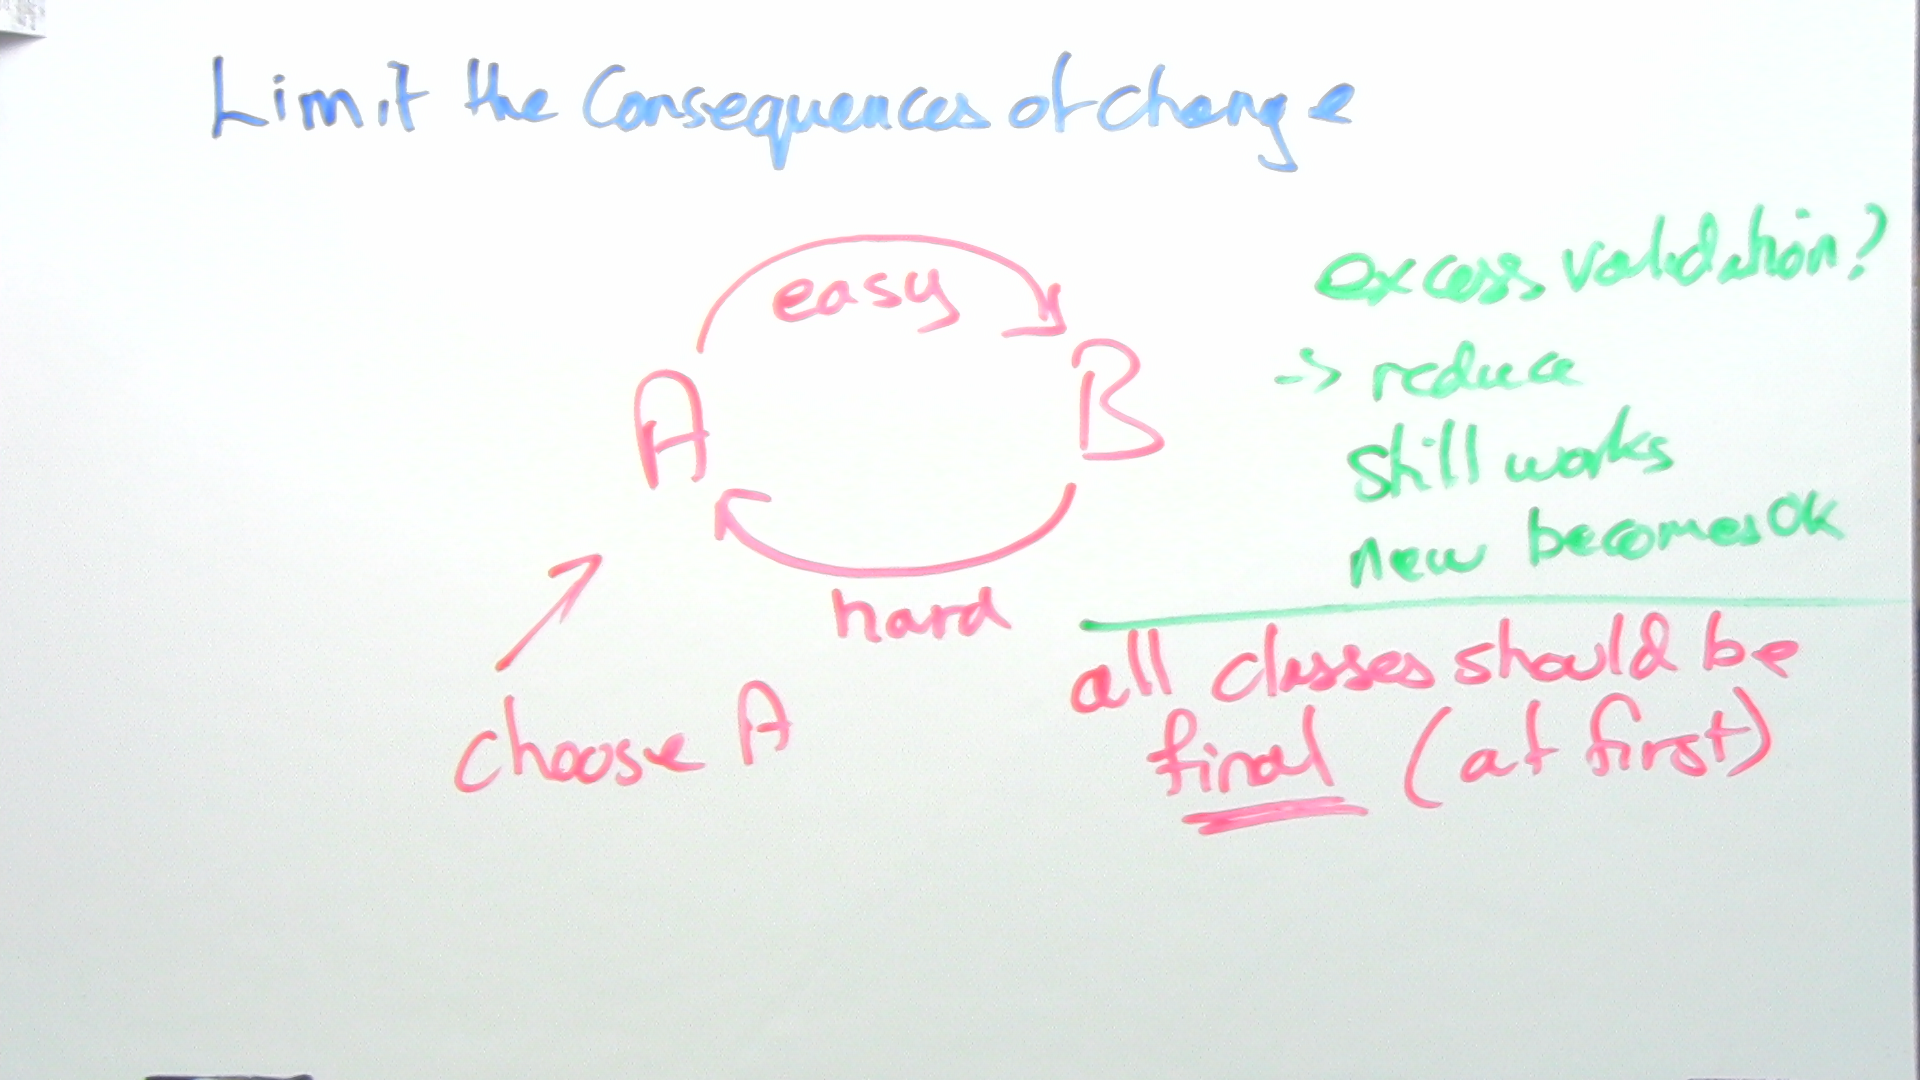 Limit the Consequences of change
easy
A
B
hard
choose A
excess validation?
-> reduce
still works
new becomes OK
all classes should be
final (at first)